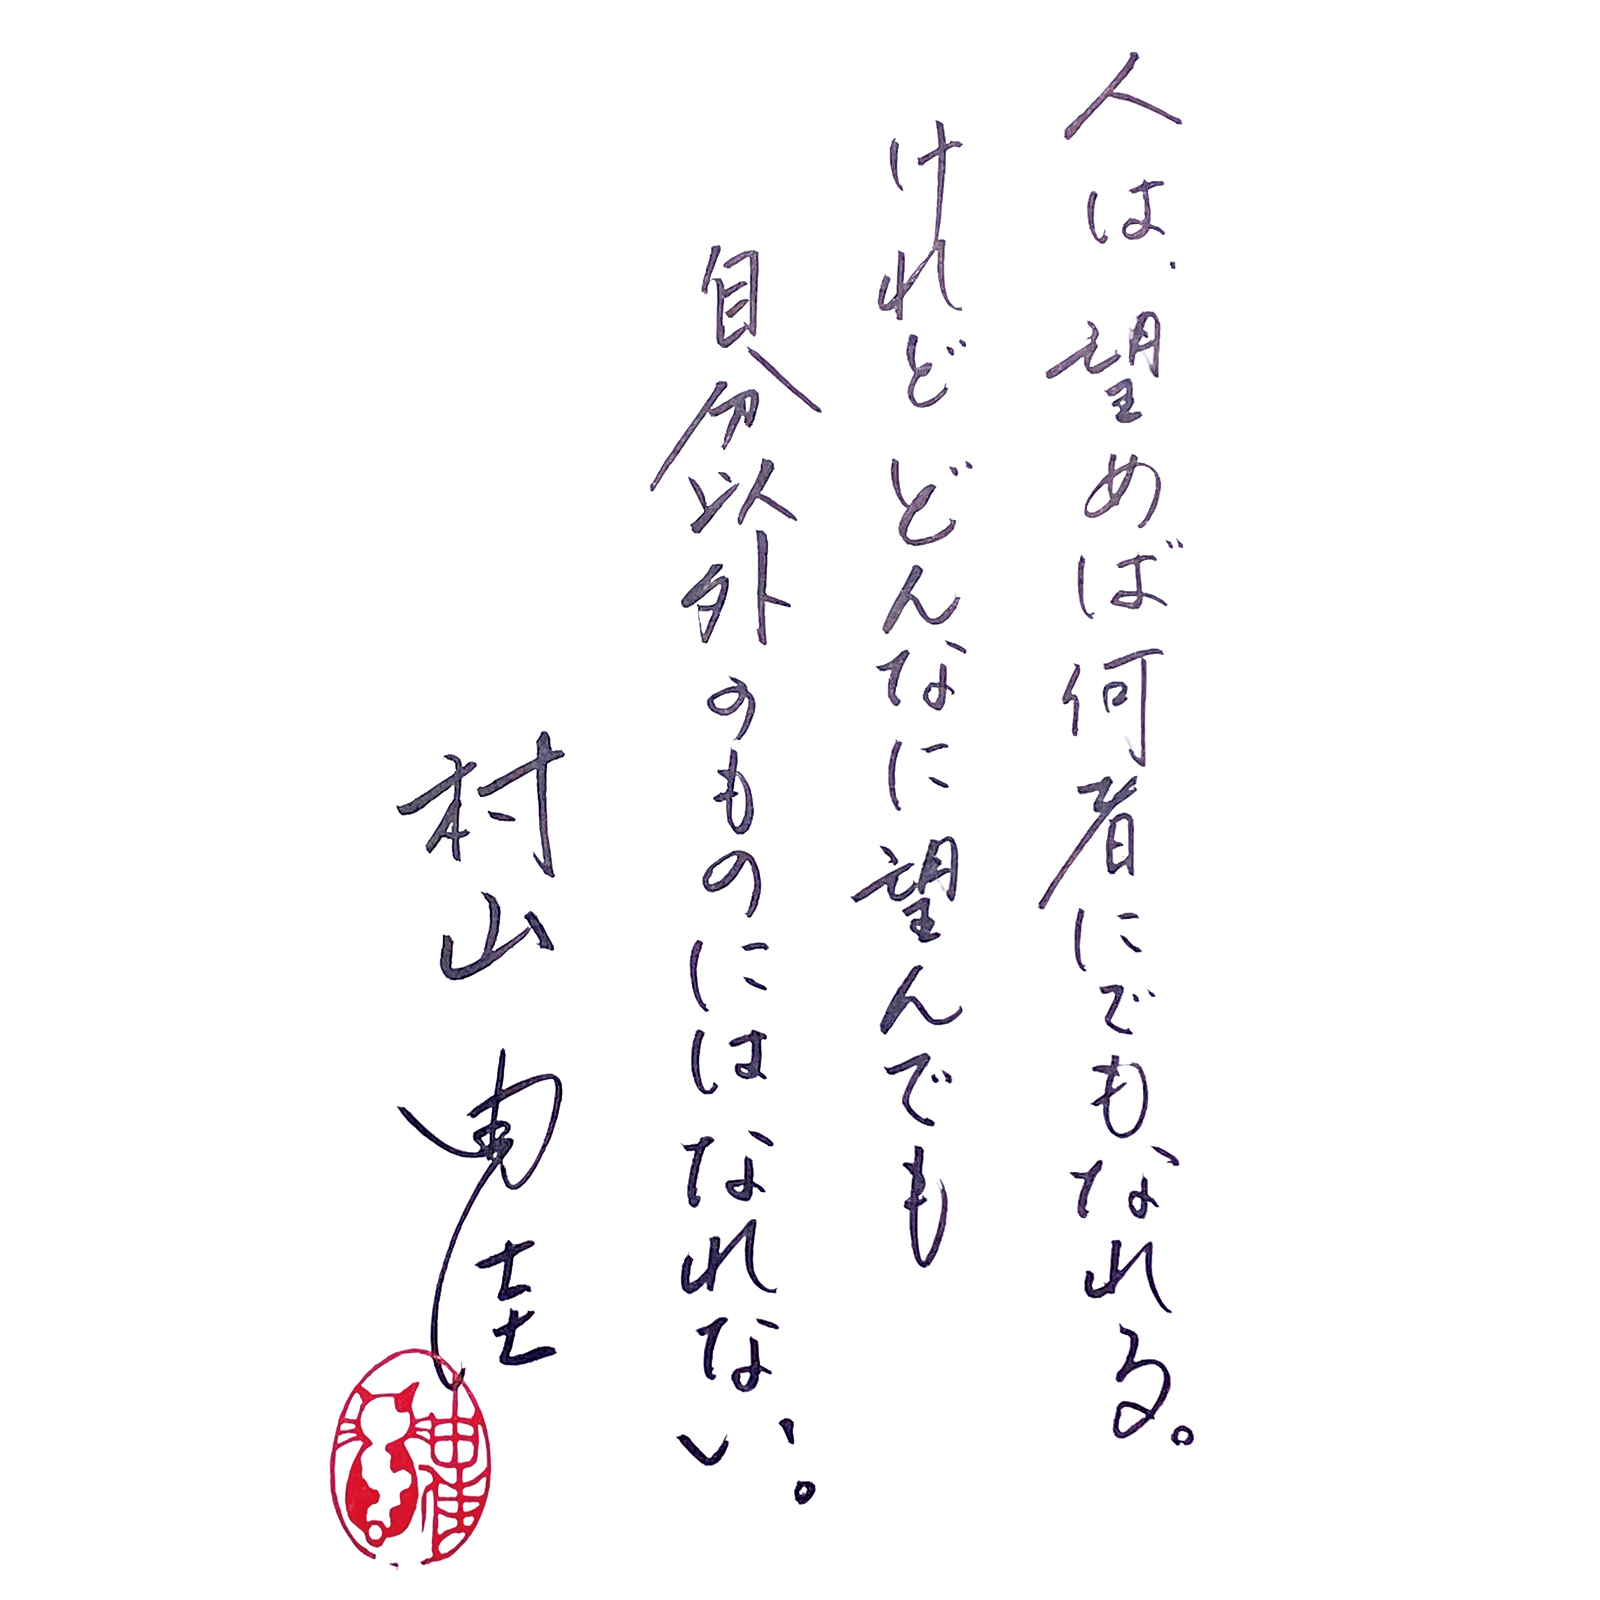 人は、望めば何者にでもなれる。
けれど どんなに望んでも
自分以外のものにはなれない。
村山 由佳